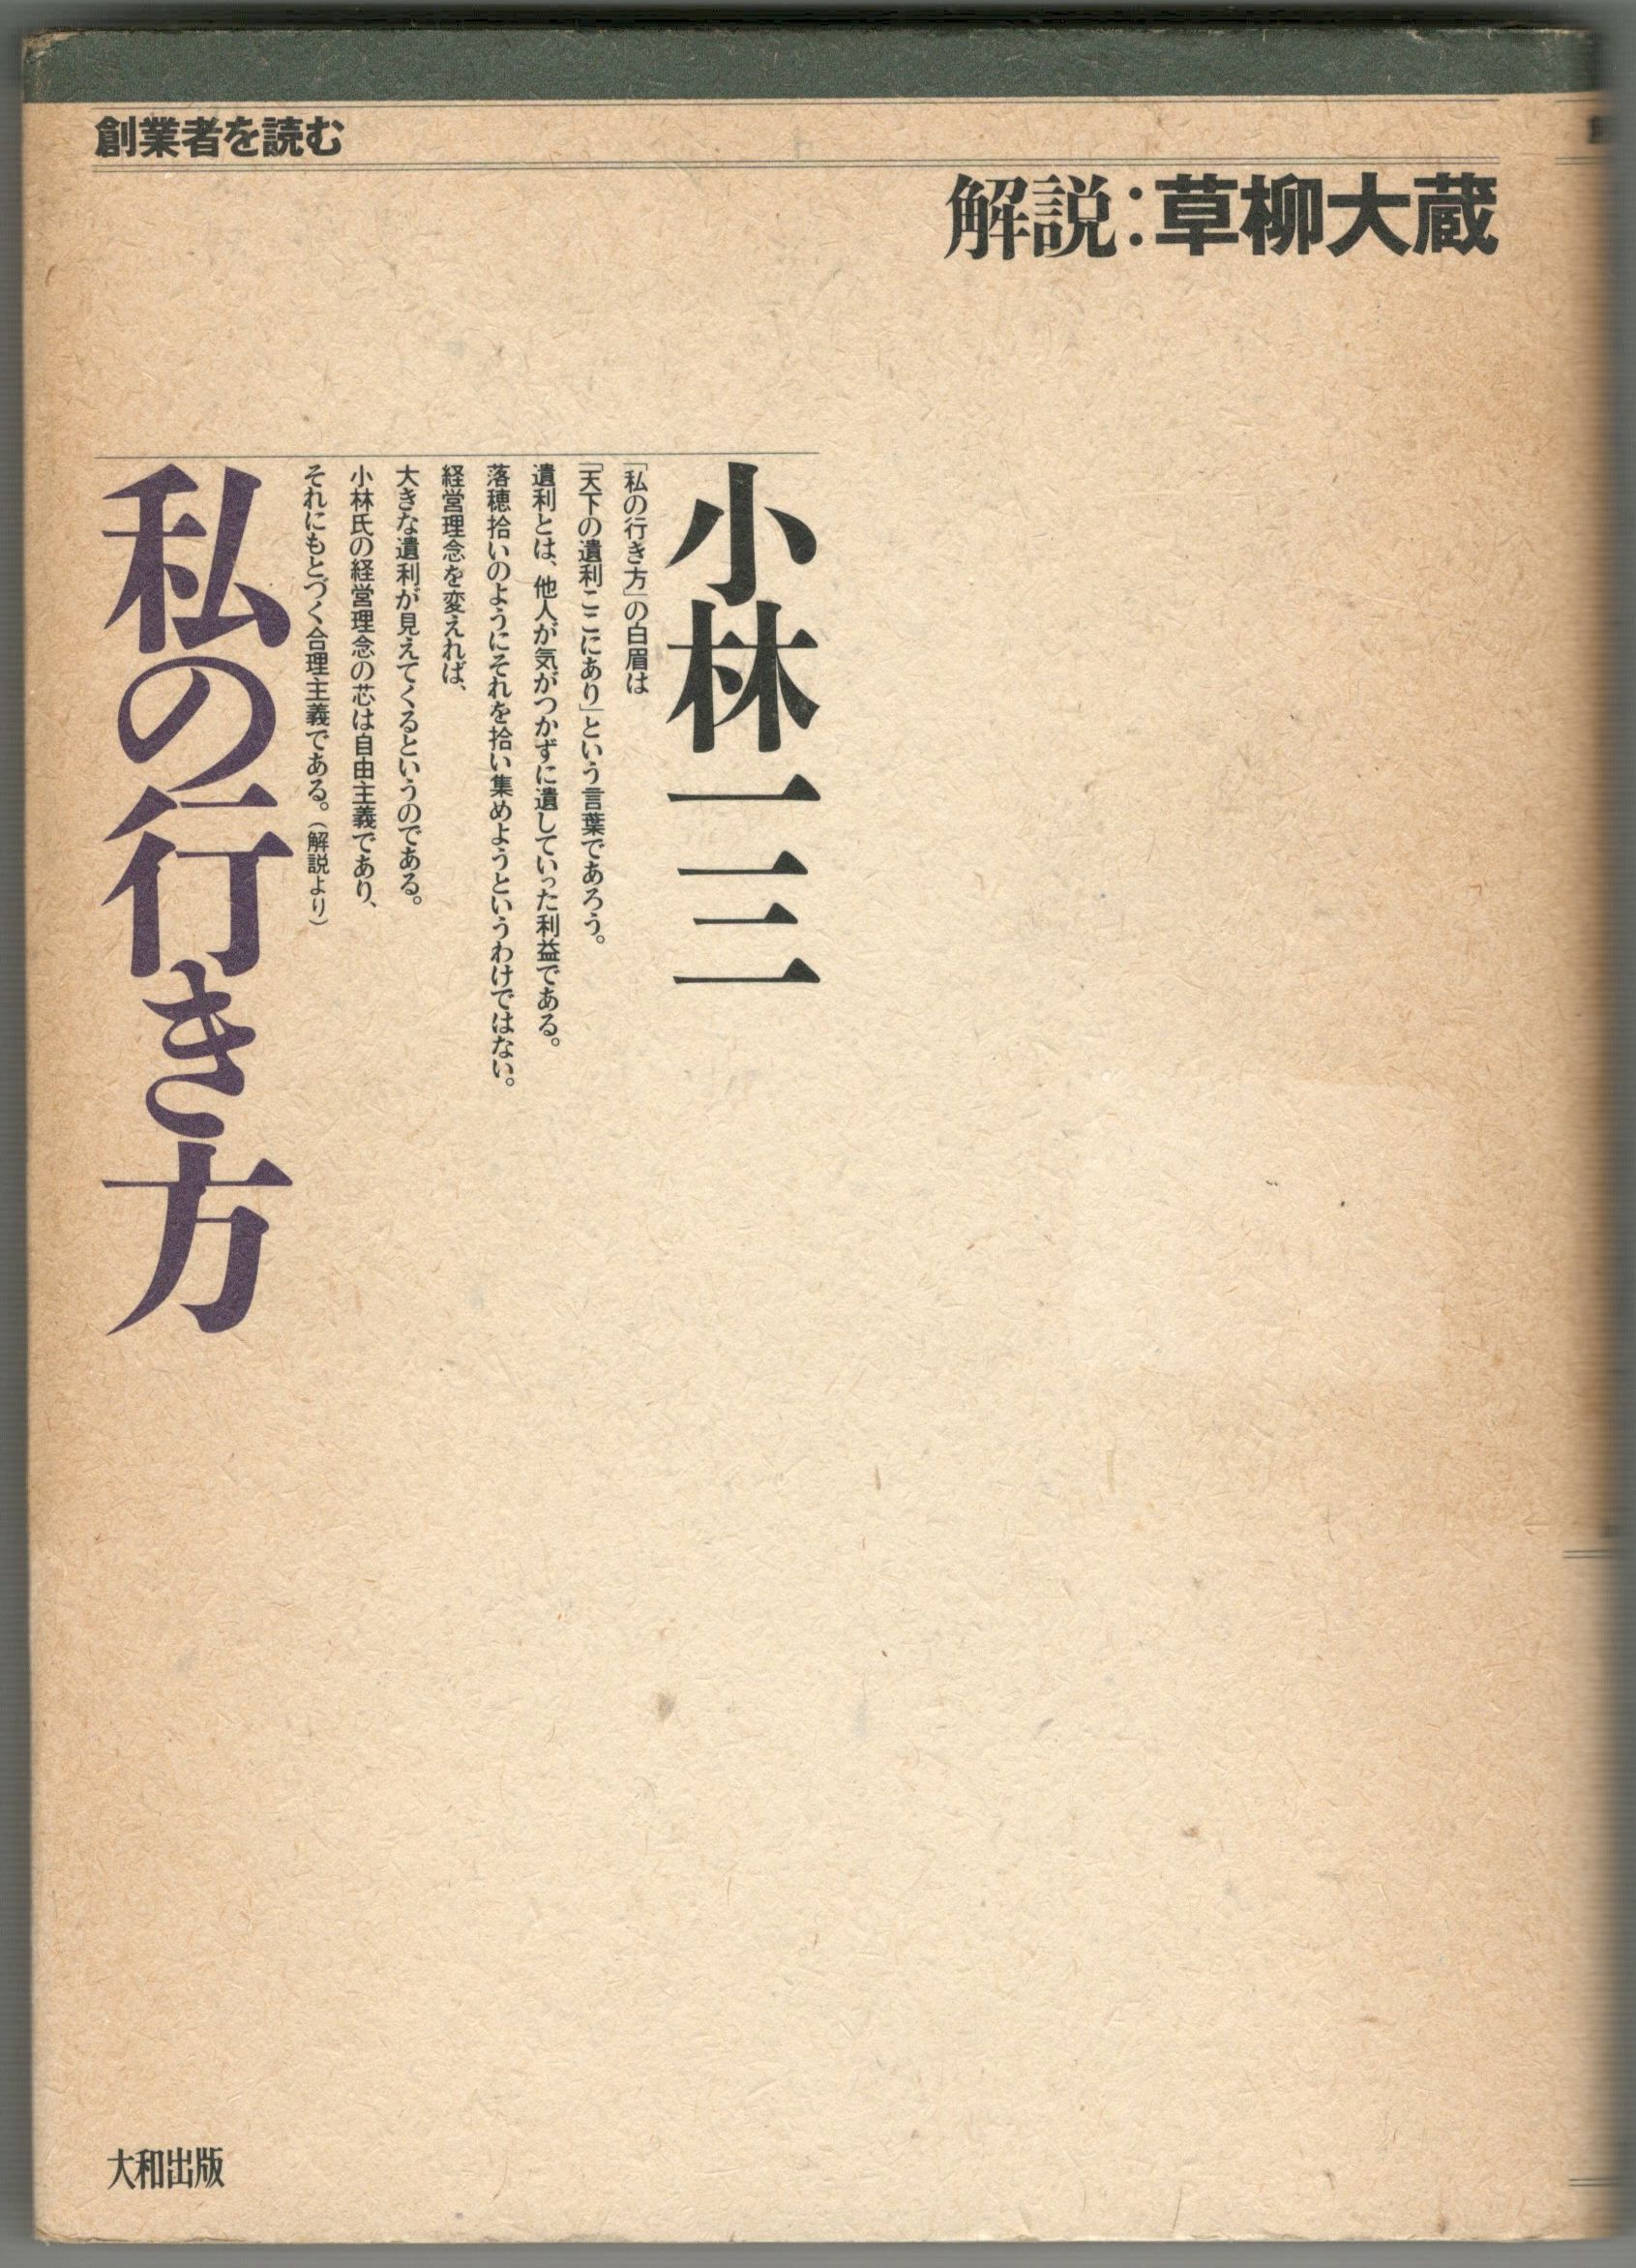 創業者を読む
解説：草柳大蔵
小林一三
「私の行き方」の白眉は
「天下の遺利ここにあり」という言葉であろう。
遺利とは、他人が気がつかずに遺していった利益である。
落穂拾いのようにそれを拾い集めようというわけではない。
経営理念を変えれば、
大きな遺利が見えてくるというのである。
小林氏の経営理念の芯は自由主義であり、
それにもとづく合理主義である。（解説より）
私の行き方
大和出版